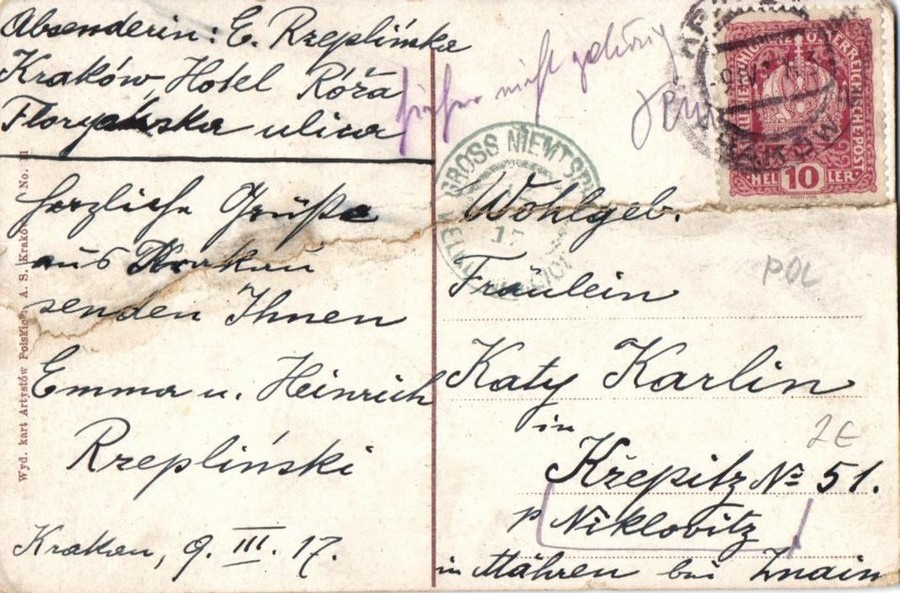 Absenderin: E. Rzeplińska
Kraków, Hotel Róża
Floryańska ulica
Herzliche Grüße
aus Krakau
senden Ihnen
Emma u. Heinrich
Rzepliński
Krakau, 9. III. 17.
Wyd. kart Artystów Polskich A. S. Kraków No.
hieher nicht gehörig
GROSS NIEMTS
HELLER 10
Wohlgeb.
Fräulein
Katy Karlin
in
Křepitz № 51.
p Niklovitz
in Mähren bei Znaim
POL
2E